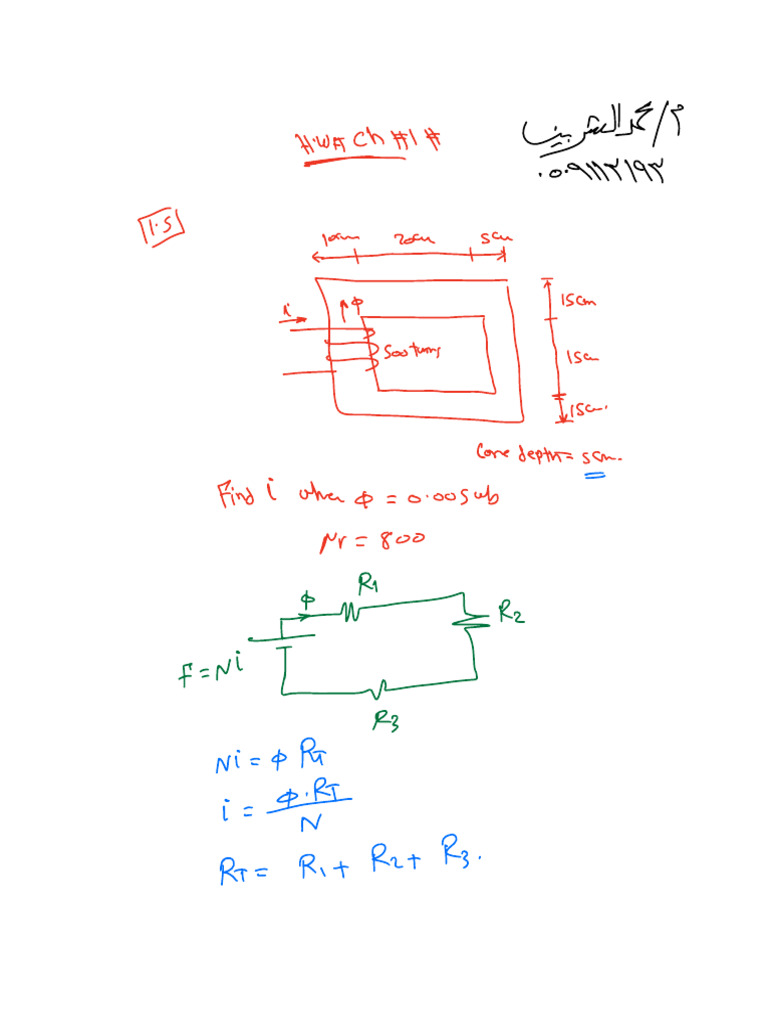 H.W# Ch #1#
م/محمد الشربيني
٠٥٠٩١١١٢١٩٣
1.5
10cm 20cm 5cm
i
ϕ
500 turns
15cm
15c
15c.
Core depth = 5cm.
Find i when ϕ = 0.005 wb
Nr = 800
R1
ϕ
R2
F = Ni
R3
Ni = ϕ RT
i = ϕ.RT / N
RT = R1 + R2 + R3.